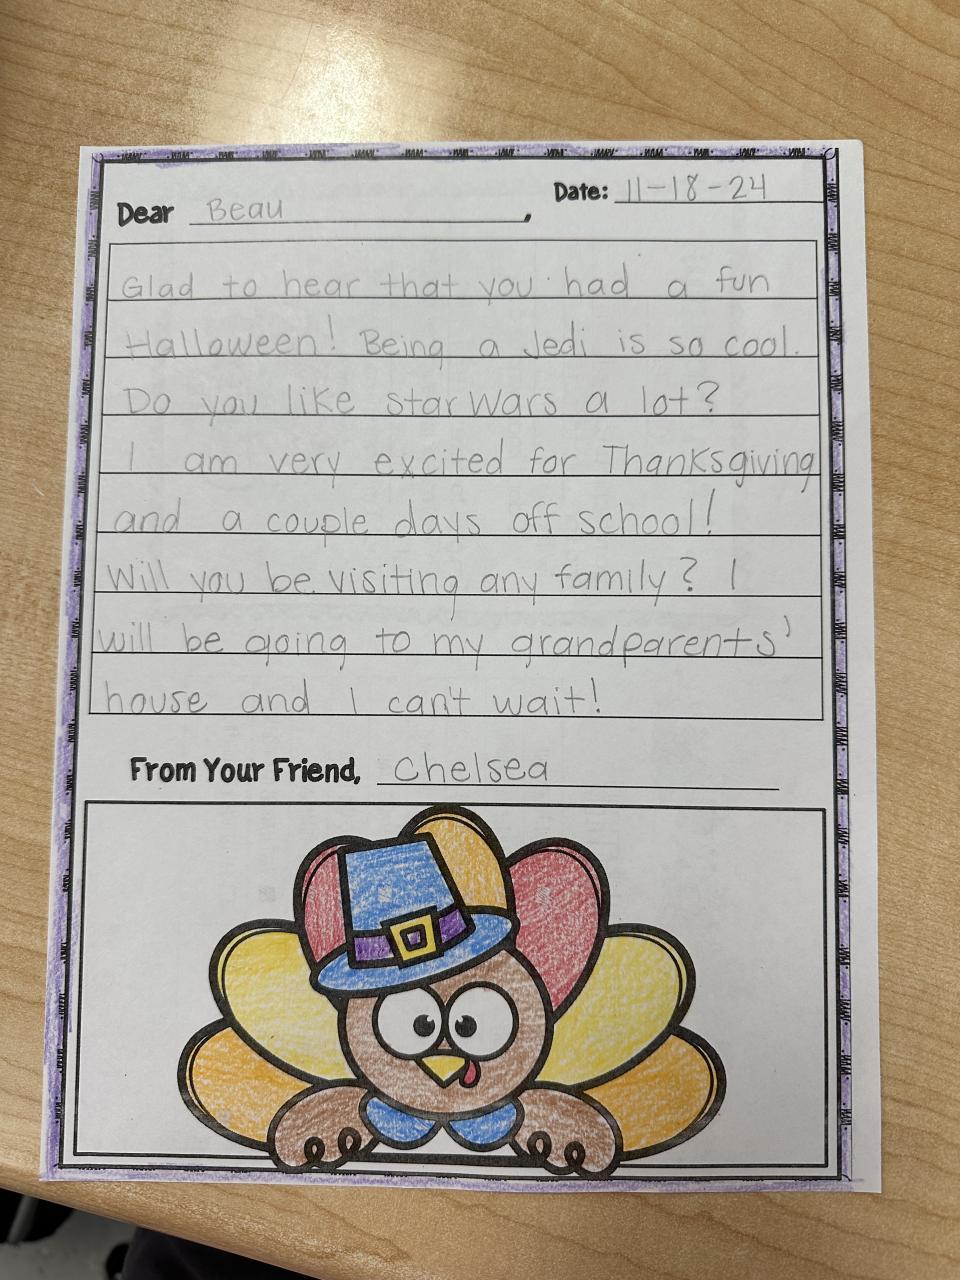 Date: 11-18-24
Dear Beau,
Glad to hear that you had a fun
Halloween! Being a Jedi is so cool.
Do you like star Wars a lot?
I am very excited for Thanksgiving
and a couple days off school!
Will you be visiting any family? I
will be going to my grandparents'
house and I can't wait!
From Your Friend, Chelsea